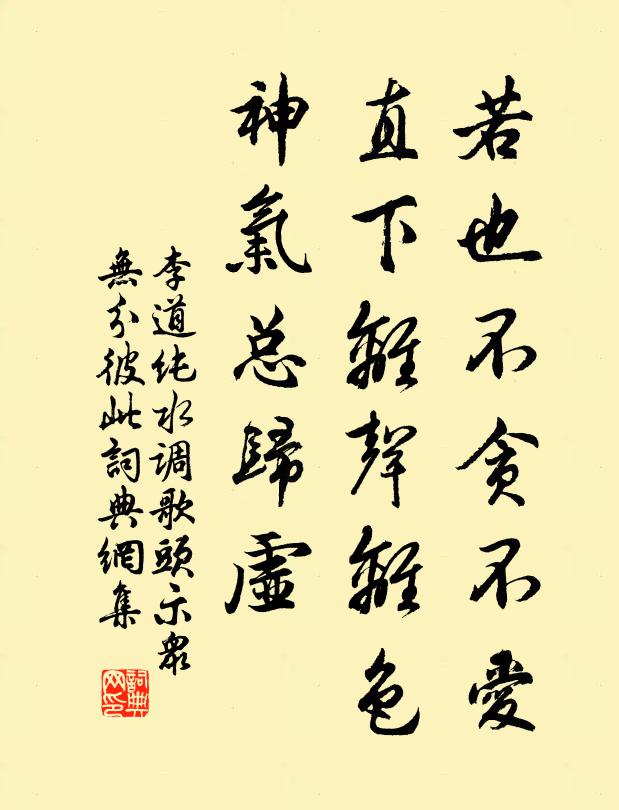 若也不贪不愛
直下離聲離色
神氣总歸虛
李道纯水调歌頭示眾
無分彼此詞典網集
詞典
网印